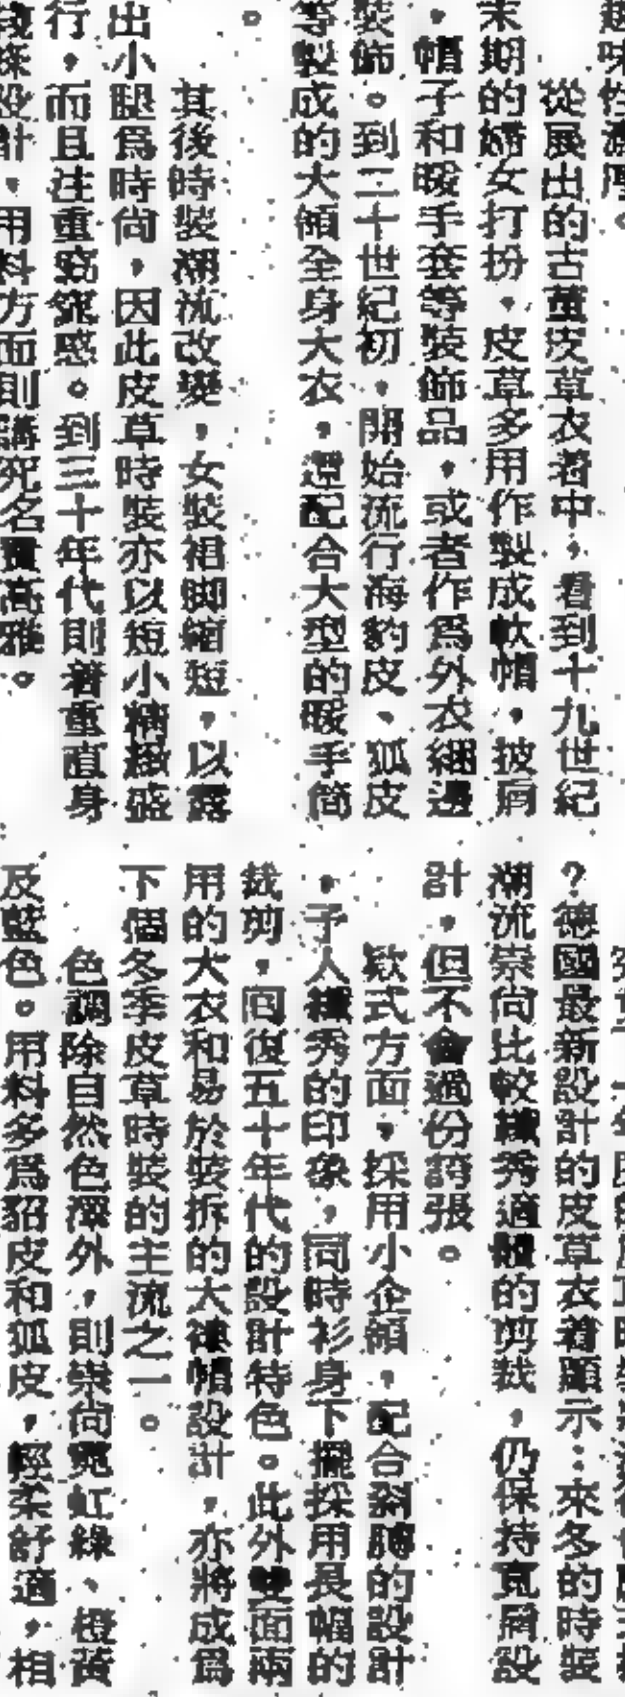 趣味性濃厚。
從展出的古董皮草衣着中，看到十九世紀
末期的婦女打扮，皮草多用作製成軟帽，披肩
，帽子和暖手套等裝飾品，或者作爲外衣綑邊
裝飾。到二十世紀初，開始流行海豹皮、狐皮
等製成的大領全身大衣，還配合大型的暖手筒
。
其後時裝潮流改變，女裝裙脚縮短，以露
出小腿爲時尚，因此皮草時裝亦以短小精緻盛
行，而且注重窈窕感。到三十年代則着重直身
設計，用料方面則講究名貴高雅。
？德國最新設計的皮草衣着顯示：來冬的時裝
潮流崇尚比較纖秀適體的剪裁，仍保持寬肩設
計，但不會過份誇張。
欵式方面，採用小企領，配合闊膊的設計
，予人纖秀的印象，同時衫身下擺採用長幅的
裁剪，回復五十年代的設計特色。此外雙面兩
用的大衣和易於裝拆的大褸帽設計，亦將成爲
下個冬季皮草時裝的主流之一。
色調除自然色澤外，則崇尚霓虹綠、橙黃
及藍色。用料多爲貂皮和狐皮，輕柔舒適，相